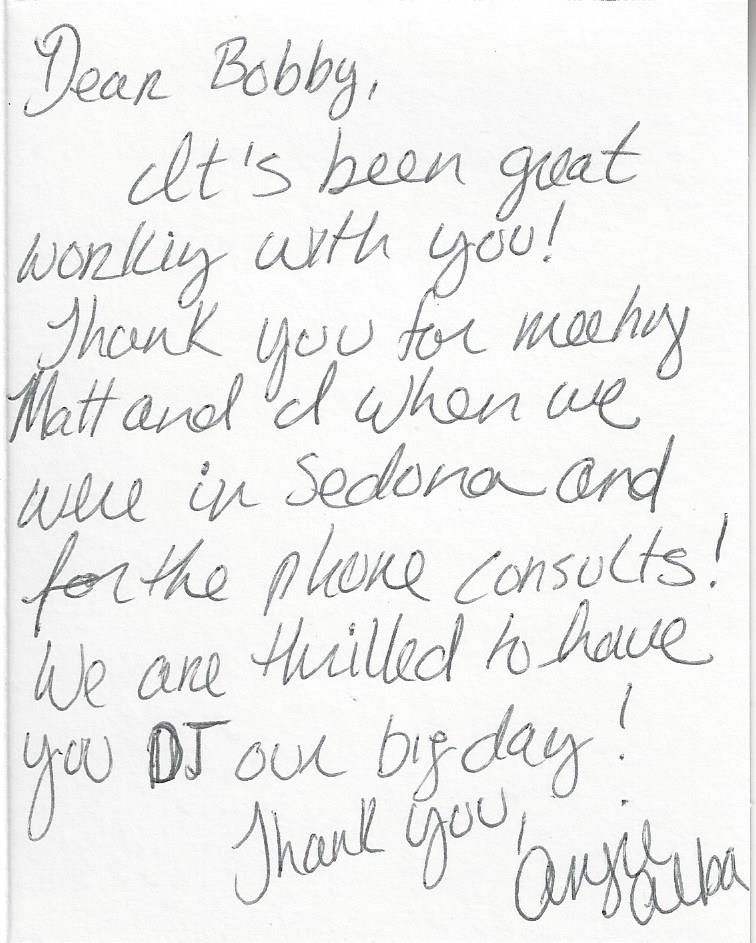 Dear Bobby,
It's been great
working with you!
Thank you for meeting
Matt and I when we
were in Sedona and
for the phone consults!
We are thrilled to have
you DJ our big day!
Thank you,
Angie
Alba